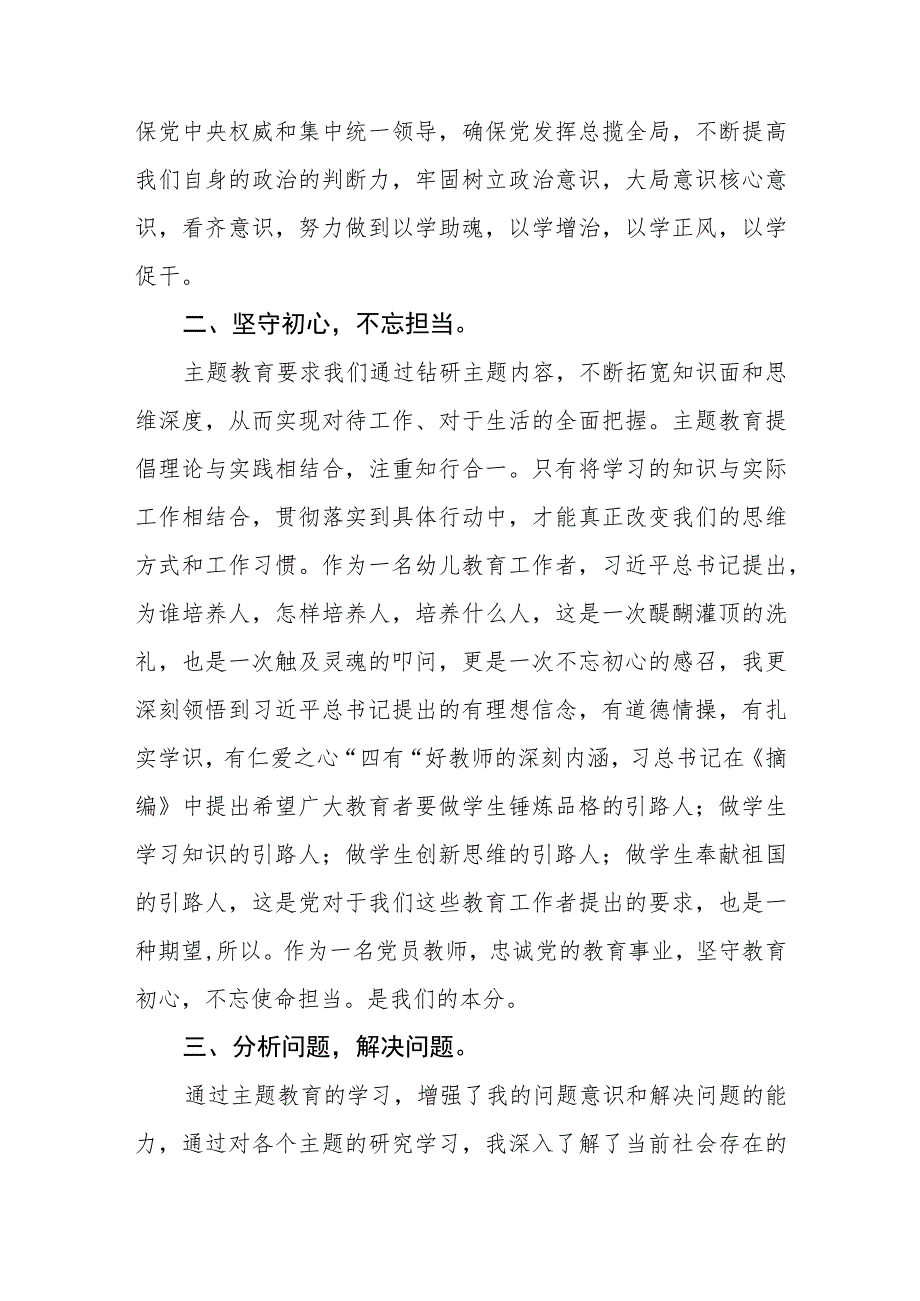 保党中央权威和集中统一领导，确保党发挥总揽全局，不断提高
我们自身的政治的判断力，牢固树立政治意识，大局意识核心意
识，看齐意识，努力做到以学助魂，以学增治，以学正风，以学
促干。
二、坚守初心，不忘担当。
主题教育要求我们通过钻研主题内容，不断拓宽知识面和思
维深度，从而实现对待工作、对于生活的全面把握。主题教育提
倡理论与实践相结合，注重知行合一。只有将学习的知识与实际
工作相结合，贯彻落实到具体行动中，才能真正改变我们的思维
方式和工作习惯。作为一名幼儿教育工作者，习近平总书记提出，
为谁培养人，怎样培养人，培养什么人，这是一次醍醐灌顶的洗
礼，也是一次触及灵魂的叩问，更是一次不忘初心的感召，我更
深刻领悟到习近平总书记提出的有理想信念，有道德情操，有扎
实学识，有仁爱之心“四有“好教师的深刻内涵，习总书记在《摘
编》中提出希望广大教育者要做学生锤炼品格的引路人；做学生
学习知识的引路人；做学生创新思维的引路人；做学生奉献祖国
的引路人，这是党对于我们这些教育工作者提出的要求，也是一
种期望,所以。作为一名党员教师，忠诚党的教育事业，坚守教育
初心，不忘使命担当。是我们的本分。
三、分析问题，解决问题。
通过主题教育的学习，增强了我的问题意识和解决问题的能
力，通过对各个主题的研究学习，我深入了解了当前社会存在的